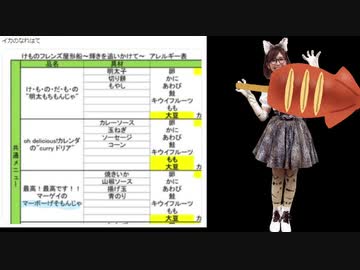 イカのなれはて
けものフレンズ屋形船～輝きを追いかけて～ アレルギー表
品名 具材
け・も・の・だ・も・の
"明太もちもんじゃ"
明太子
切り餅
もやし
卵
かに
あわび
鮭
キウイフルーツ
もも
大豆
カ
共通メニュー
oh delicious!カレンダ
の"curry ドリア"
カレーソース
玉ねぎ
ソーセージ
コーン
卵
かに
あわび
鮭
キウイフルーツ
もも
大豆
カ
最高!最高です!!
マーゲイの
マーボーげそもんじゃ
焼きいか
山椒ソース
揚げ玉
青のり
卵
かに
あわび
鮭
キウイフルーツ
もも
大豆
カ